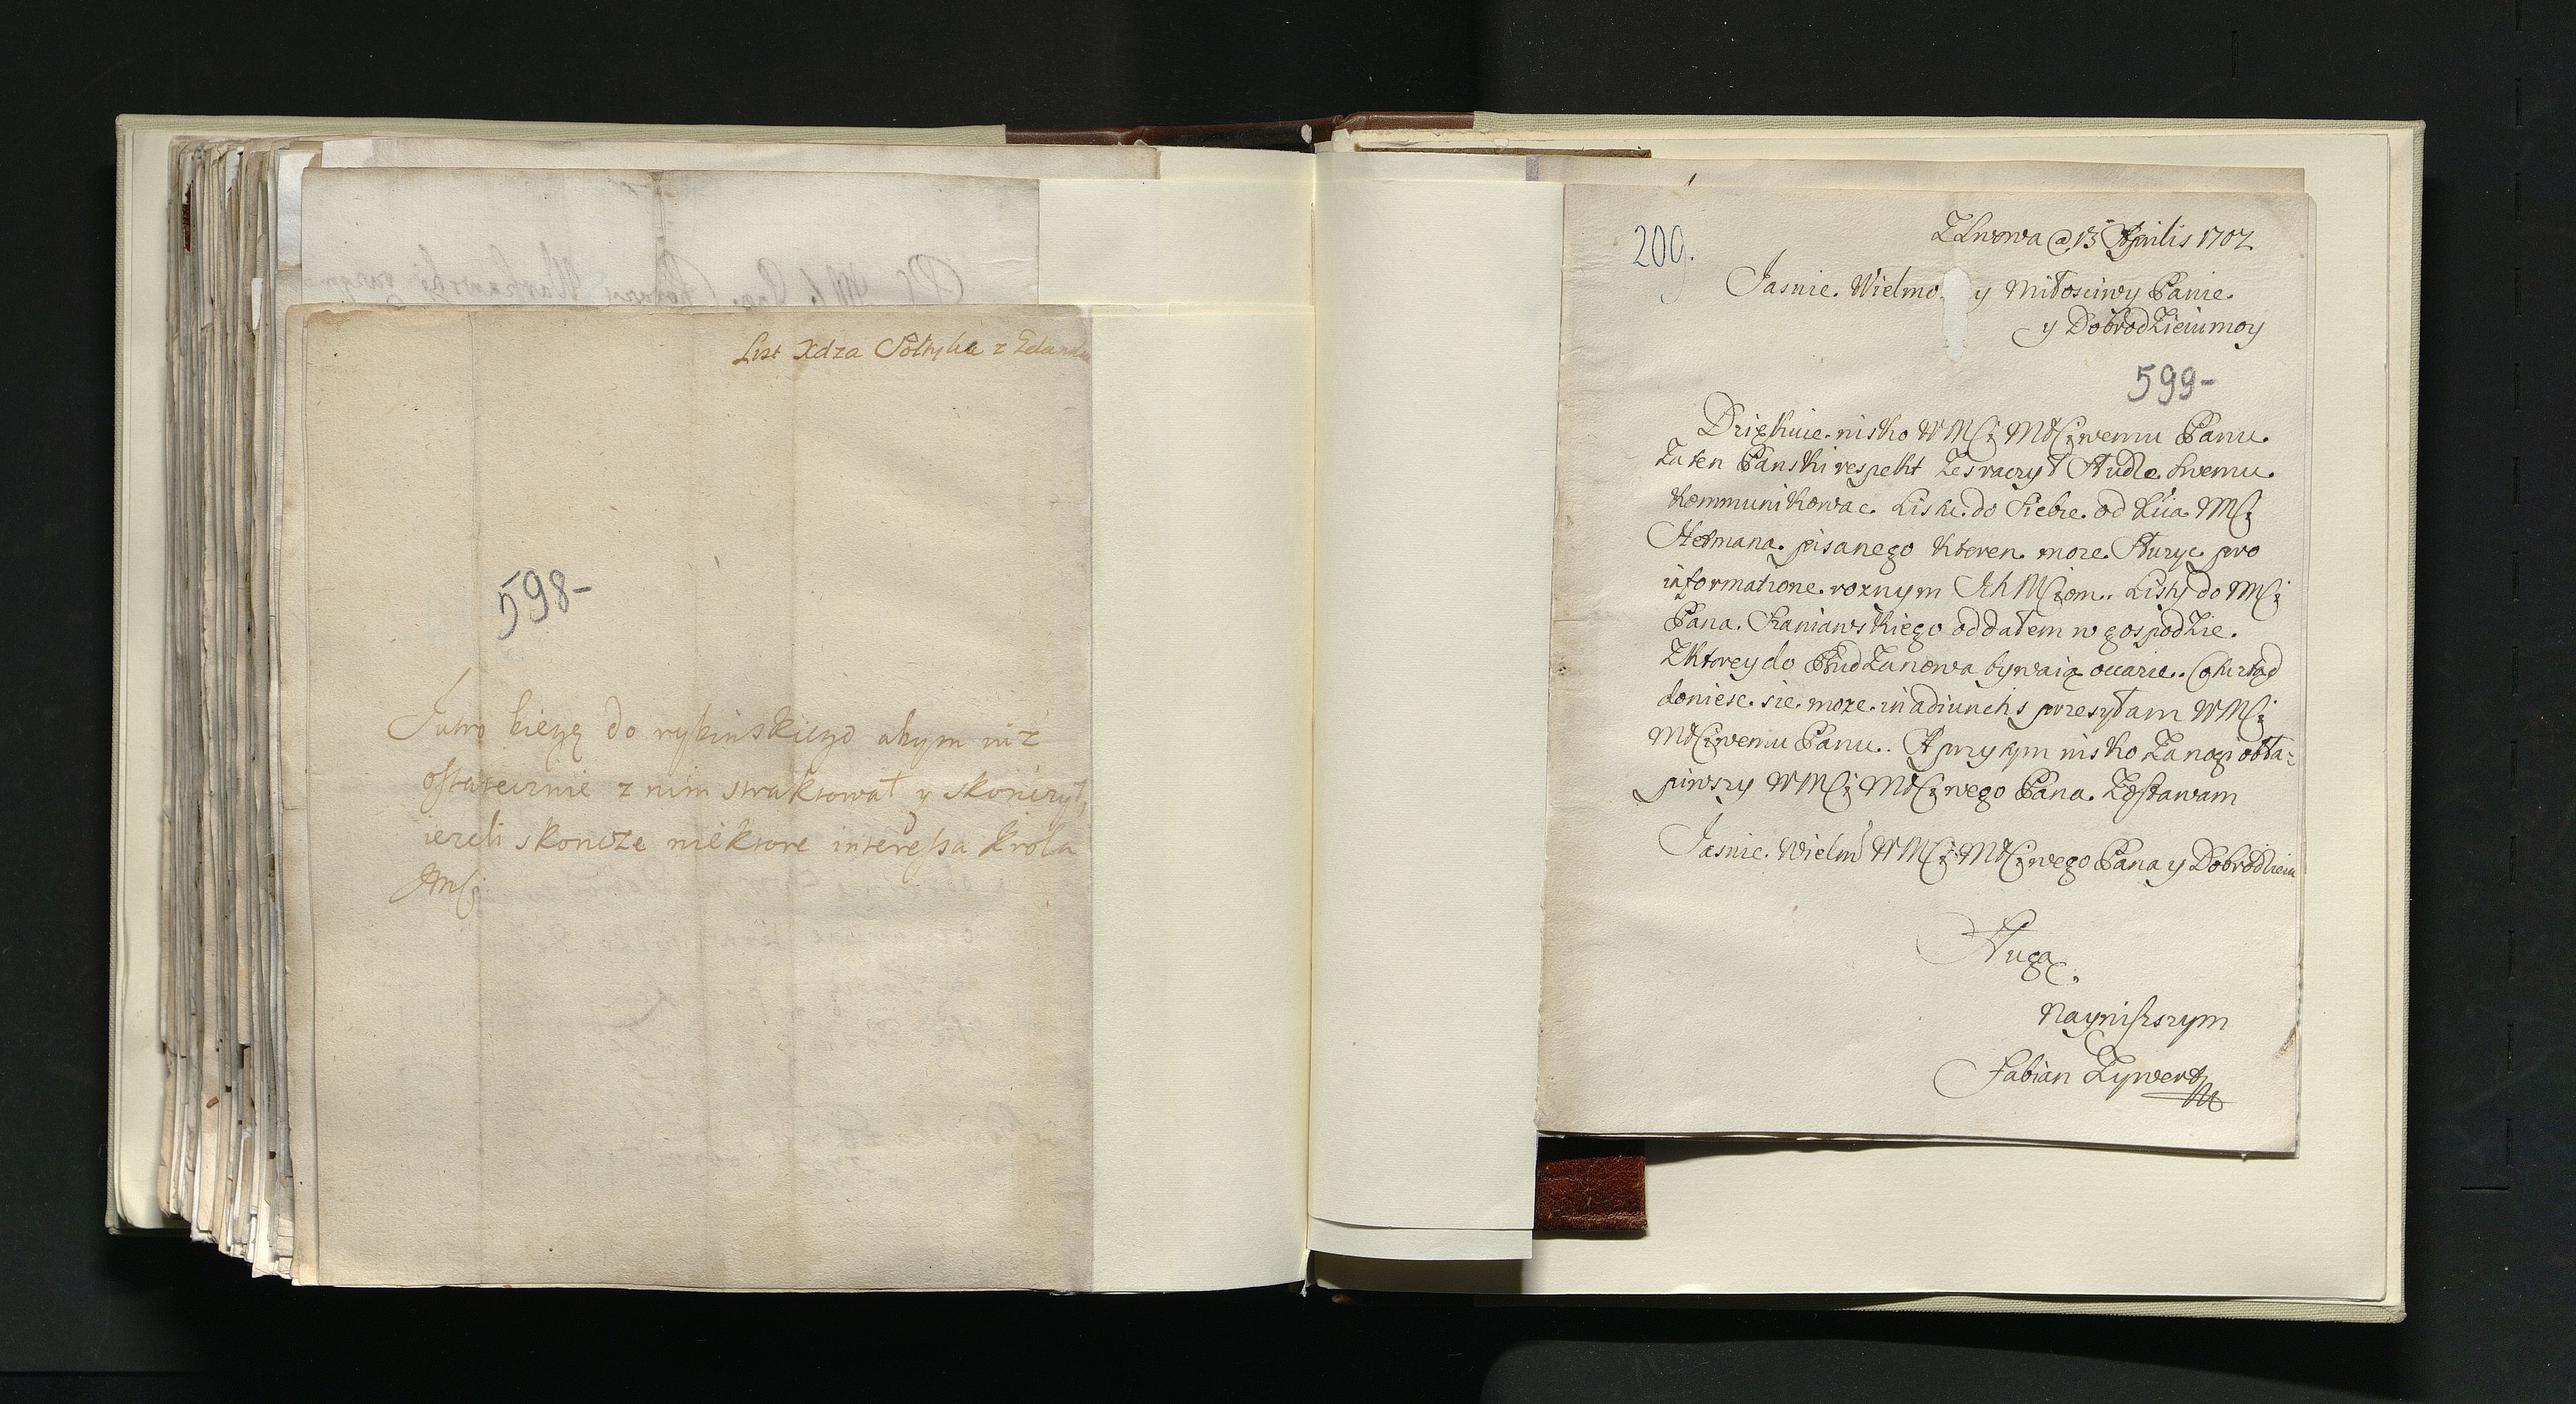 List Xdza Sołtyka z Gdanska
598-
Jutro bieżę do rybinskiego abym iuż
ostatecznie z nim straktował y skończył,
ieżeli skoncze niektore interessa Krola
JMći
209.
Z Lwowa @ 13 Aprilis 1702
Jasnie Wielmo y Miłosciwy Panie
y Dobrodzieiu moy
599-
Dziękuie nisko WMCi MCiwemu Panu
Za ten Panski respekt Ze raczył Słudze swemu
kommunikowac Listu do Siebie od MCi
Hetmana pisanego ktoren moze Słuzyc pro
informatione roznym Ich MCiom. Listy do MCi
Pana Szaniawskiego oddałem w gospodzie
Z ktorey do Budzanowa bywaią
doniese sie moze in adiunctis przesyłam WMCi
MCiwemu Panu. A przy tym nisko Za nogi obła-
piwszy WMCi MCiwego Pana Zostawam
Jasnie Wielm WMCi MCiwego Pana y Dobrodzieia
Sługą
Nayniszszym
Fabian Zywert